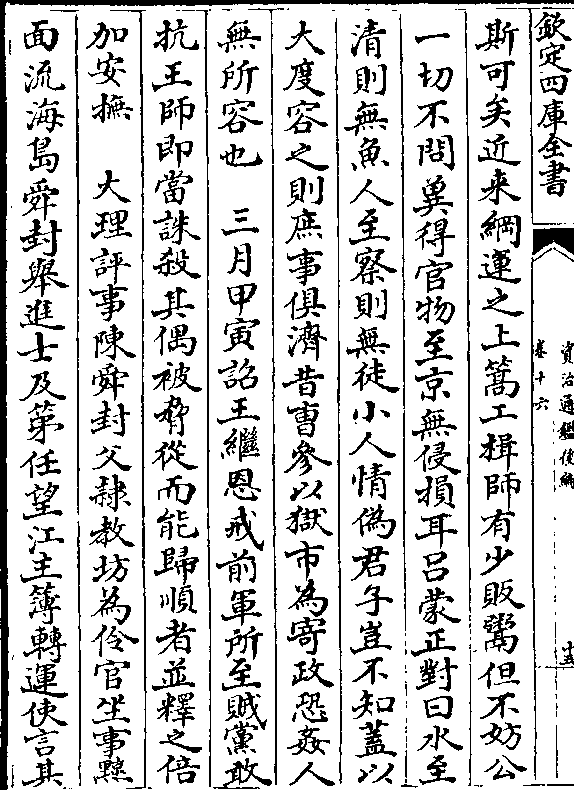 欽定四庫全書
資治通鑑後編
卷十六
斯可矣近來綱運之上篙工楫師有少販鬻但不妨公
一切不問兾得官物至京無侵損耳呂蒙正對曰水至
清則無魚人至察則無徒小人情偽君子豈不知蓋以
大度容之則庶事俱濟昔曹參以獄市為寄政恐姦人
無所容也　三月甲寅詔王繼恩戒前軍所至賊黨敢
抗王師即當誅殺其偶被脅從而能歸順者並釋之倍
加安撫　大理評事陳舜封父隸教坊為伶官坐事黥
面流海島舜封舉進士及第任望江主簿轉運使言其